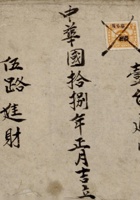 中華國拾捌年正月吉立
伍路進財